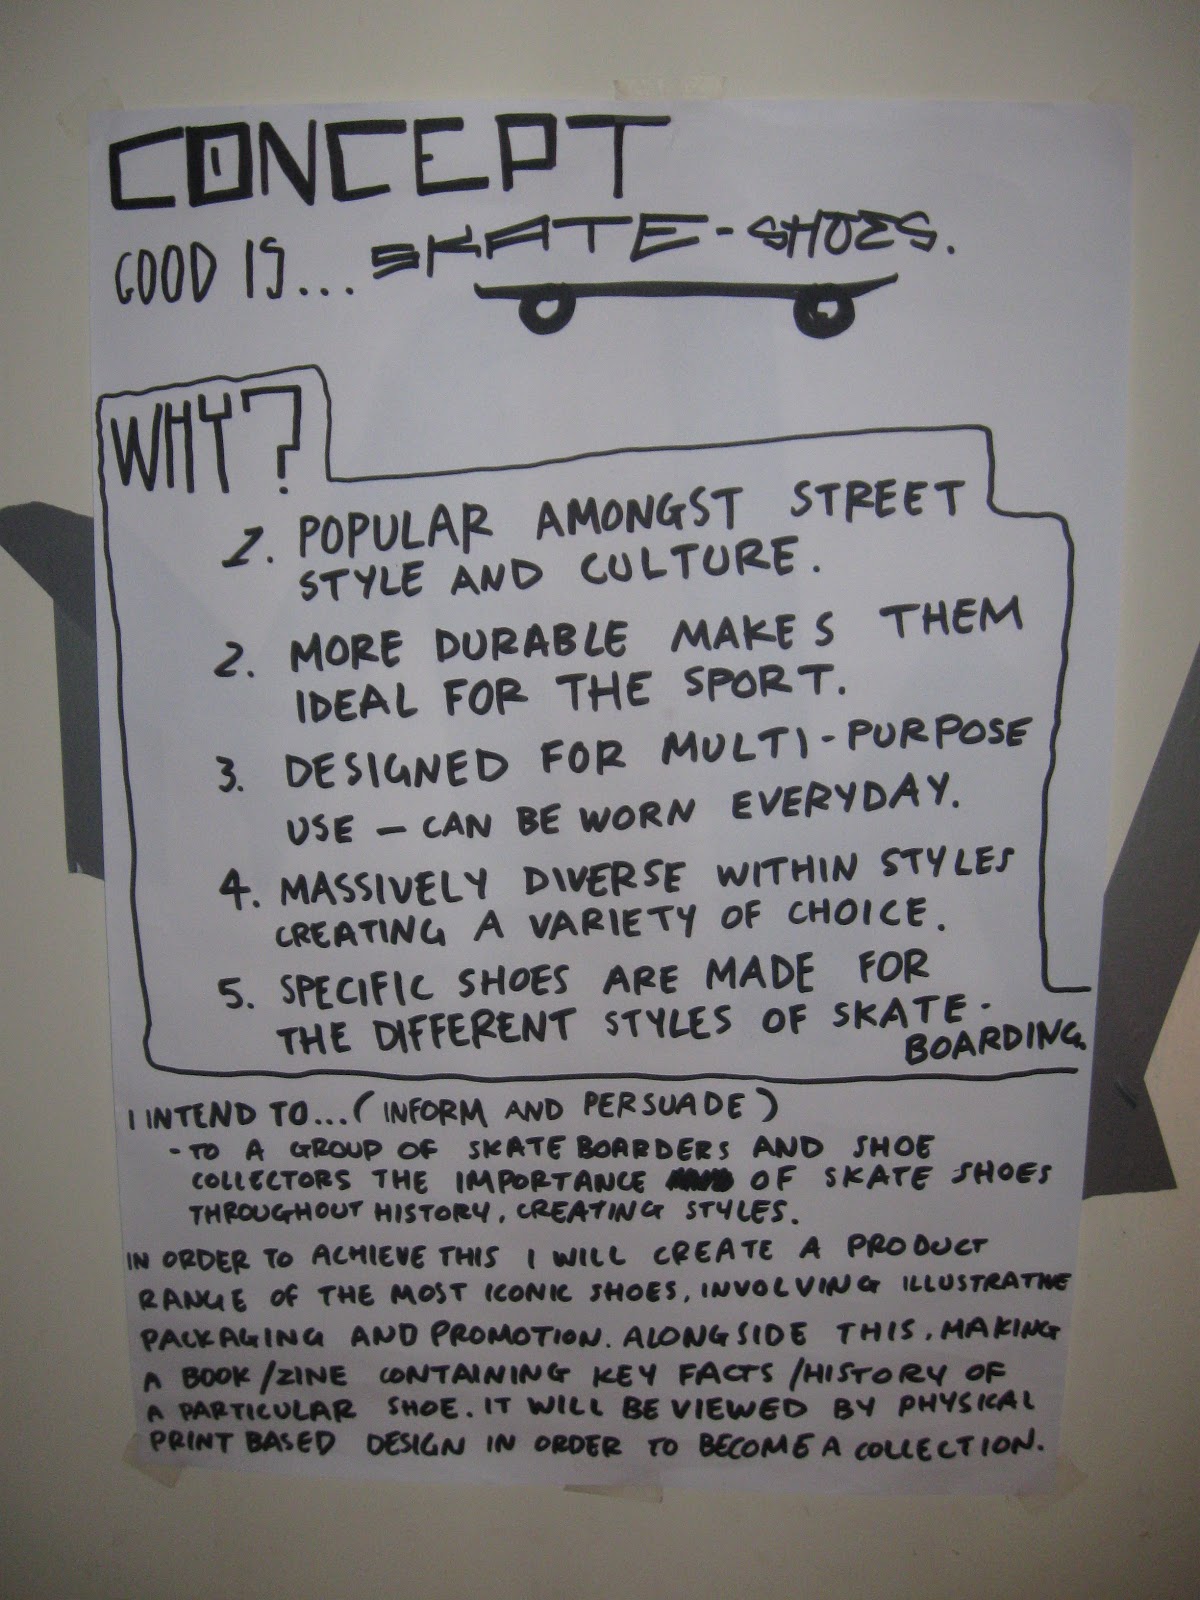 CONCEPT
GOOD IS... SKATE-SHOES.
WHY?
1. POPULAR AMONGST STREET
STYLE AND CULTURE.
2. MORE DURABLE MAKES THEM
IDEAL FOR THE SPORT.
3. DESIGNED FOR MULTI-PURPOSE
USE — CAN BE WORN EVERYDAY.
4. MASSIVELY DIVERSE WITHIN STYLES
CREATING A VARIETY OF CHOICE.
5. SPECIFIC SHOES ARE MADE FOR
THE DIFFERENT STYLES OF SKATE-
BOARDING.
I INTEND TO...(INFORM AND PERSUADE)
- TO A GROUP OF SKATEBOARDERS AND SHOE
COLLECTORS THE IMPORTANCE OF SKATE SHOES
THROUGHOUT HISTORY, CREATING STYLES.
IN ORDER TO ACHIEVE THIS I WILL CREATE A PRODUCT
RANGE OF THE MOST ICONIC SHOES, INVOLVING ILLUSTRATIVE
PACKAGING AND PROMOTION. ALONGSIDE THIS, MAKING
A BOOK/ZINE CONTAINING KEY FACTS/HISTORY OF
A PARTICULAR SHOE. IT WILL BE VIEWED BY PHYSICAL
PRINT BASED DESIGN IN ORDER TO BECOME A COLLECTION.